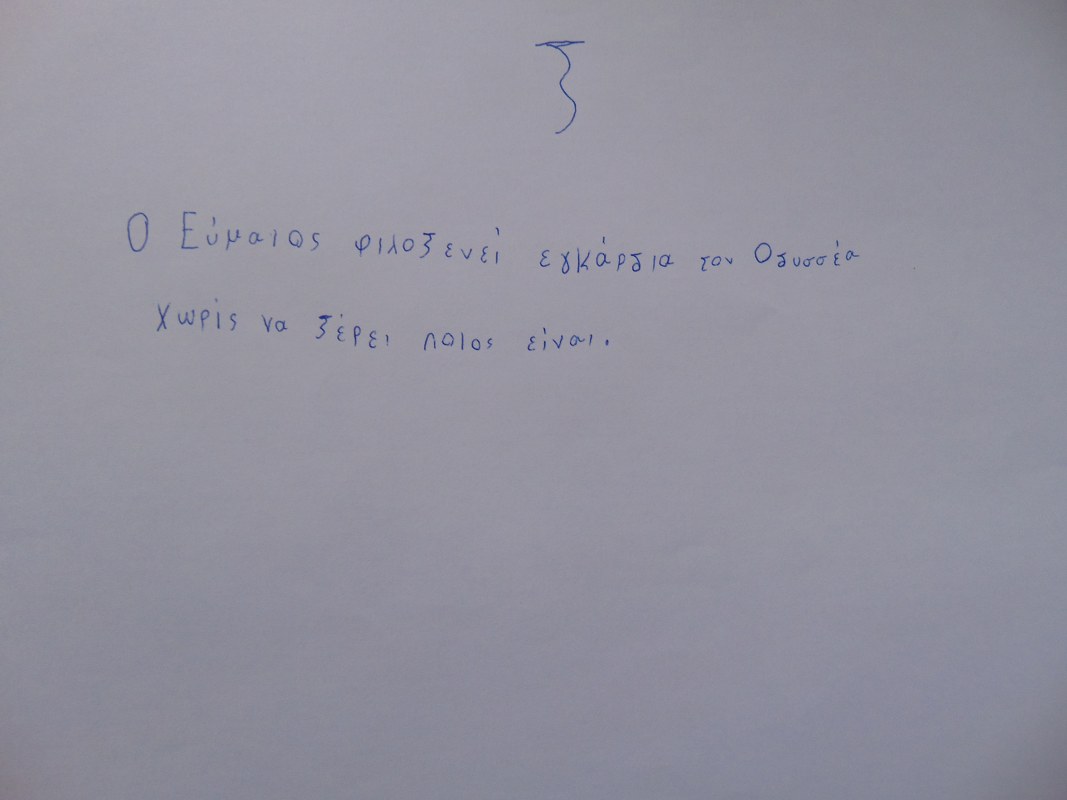 ξ
Ο Εύμαιος φιλοξενεί εγκάρδια τον Οδυσσέα
χωρίς να ξέρει ποιος είναι.